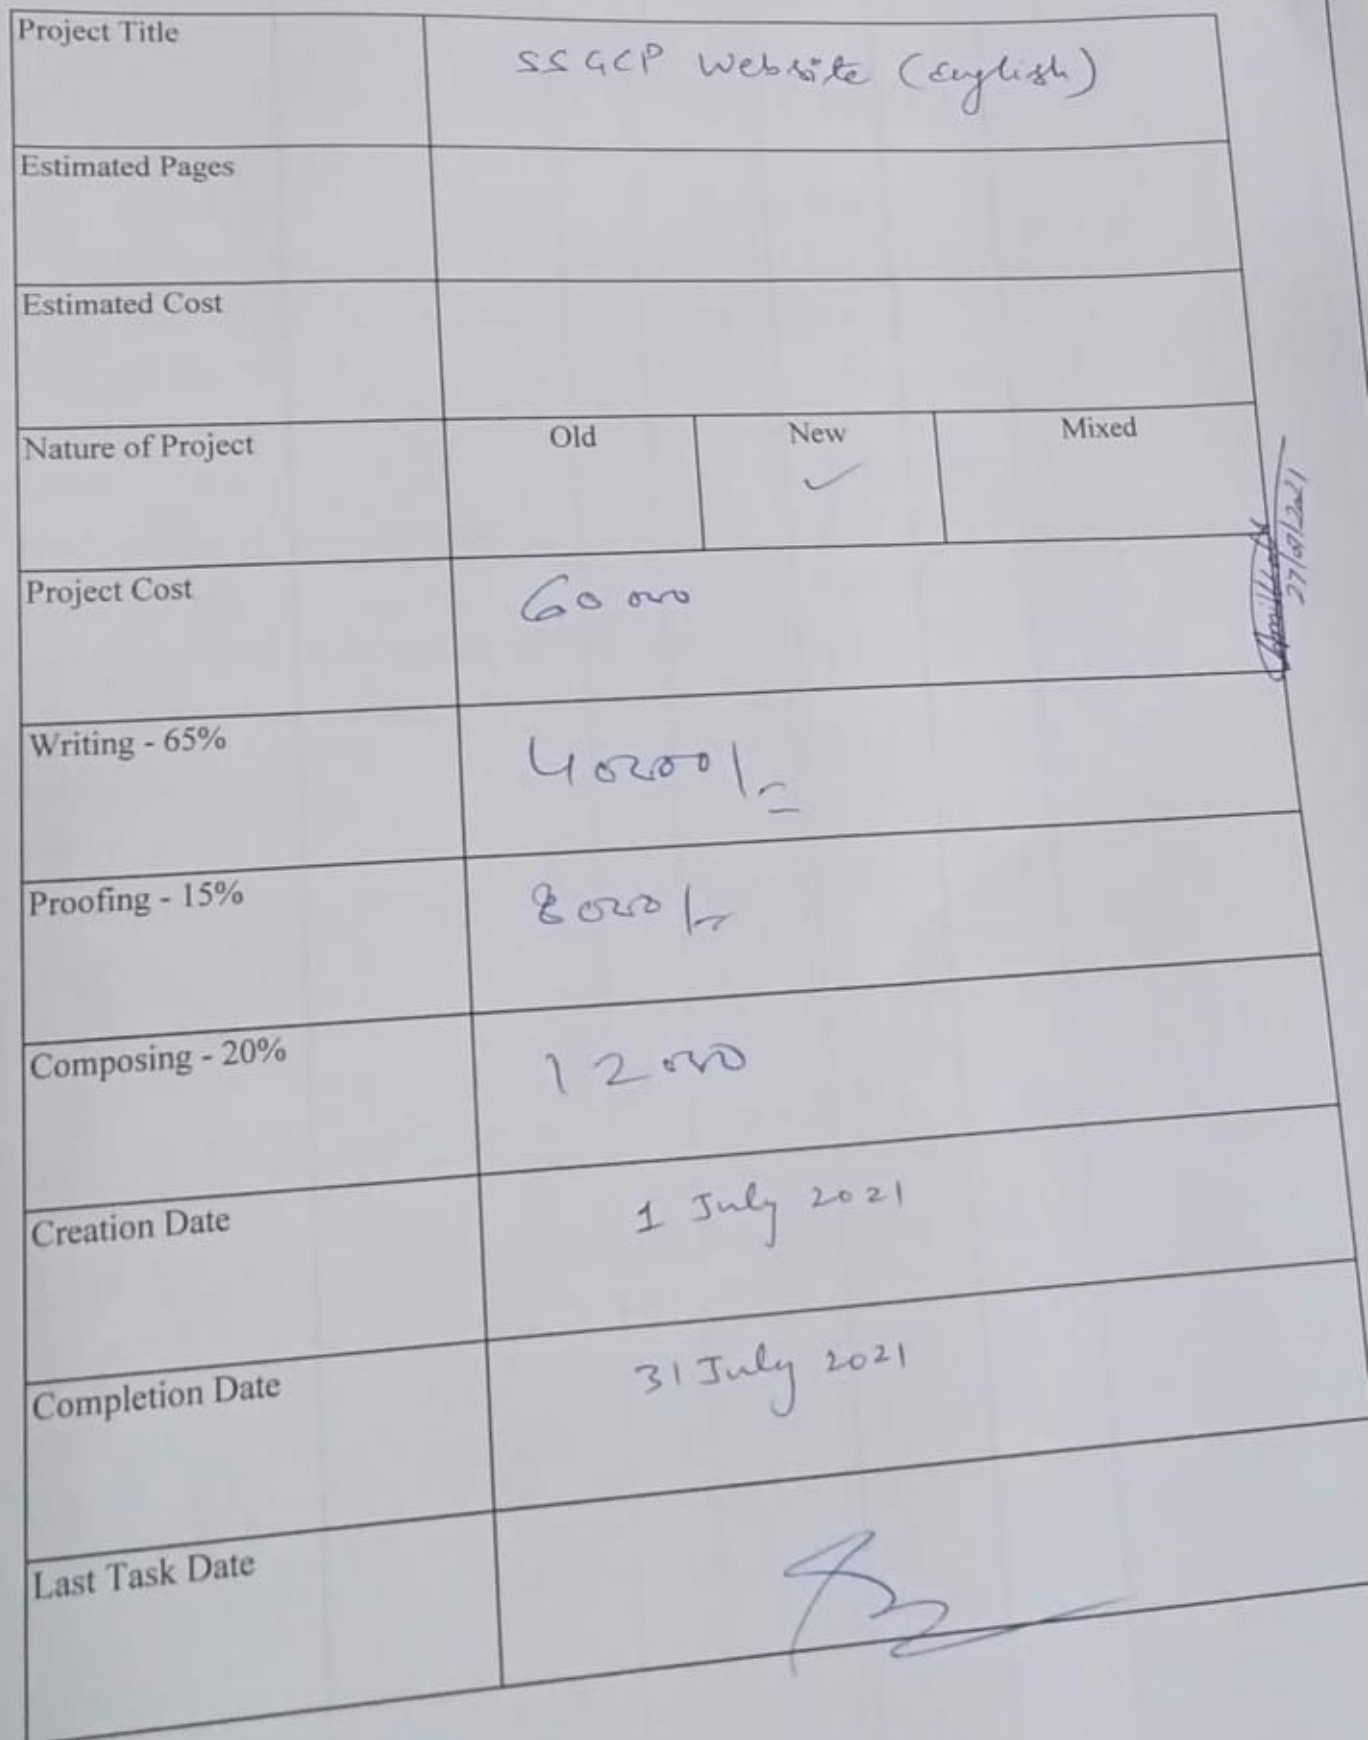 Project Title
SSGCP Website (English)
Estimated Pages
Estimated Cost
Nature of Project
Old
New
Mixed
27/07/2021
Project Cost
60000
Writing - 65%
40000/-
Proofing - 15%
8000/-
Composing - 20%
12000
Creation Date
1 July 2021
Completion Date
31 July 2021
Last Task Date